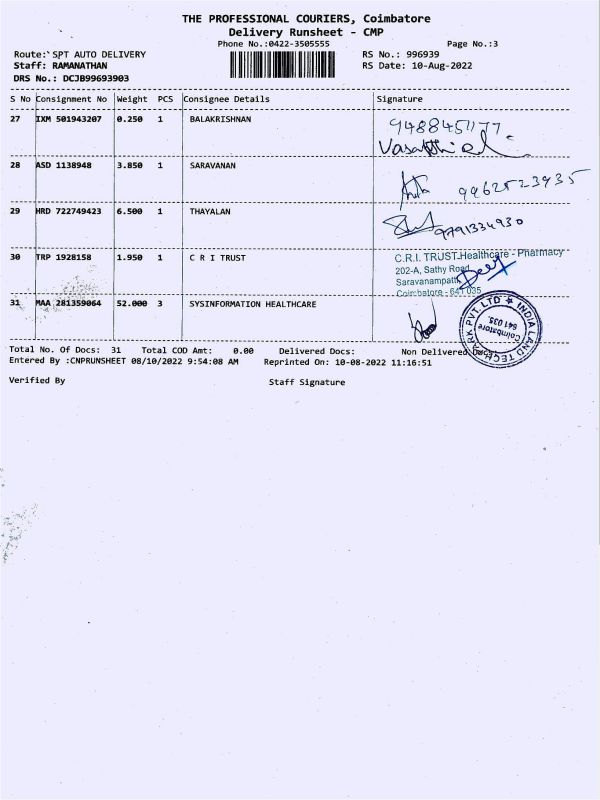 THE PROFESSIONAL COURIERS, Coimbatore
Delivery Runsheet - CMP
Phone No.:0422-3505555
Page No.:3
Route: SPT AUTO DELIVERY
RS No.: 996939
Staff: RAMANATHAN
RS Date: 10-Aug-2022
DRS No.: DCJB99693903
S No Consignment No Weight PCS Consignee Details Signature
27 IXM 501943207 0.250 1 BALAKRISHNAN
9488451177
28 ASD 1138948 3.850 1 SARAVANAN
9962523935
29 HRD 722749423 6.500 1 THAYALAN
9791334930
30 TRP 1928158 1.950 1 C R I TRUST
C.R.I. TRUST Healthcare - Pharmacy
202-A, Sathy Road
Saravanampatti
Coimbatore - 641 035
31 MAA 281359064 52.000 3 SYSINFORMATION HEALTHCARE
INDIA LAND TECH PARK PVT. LTD
Coimbatore
641 035
Total No. Of Docs: 31 Total COD Amt: 0.00 Delivered Docs: Non Delivered Docs:
Entered By :CNPRUNSHEET 08/10/2022 9:54:08 AM Reprinted On: 10-08-2022 11:16:51
Verified By Staff Signature